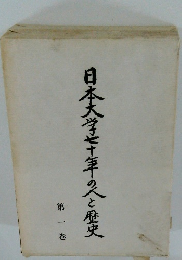 日本大学七十年の人と歴史
第一巻